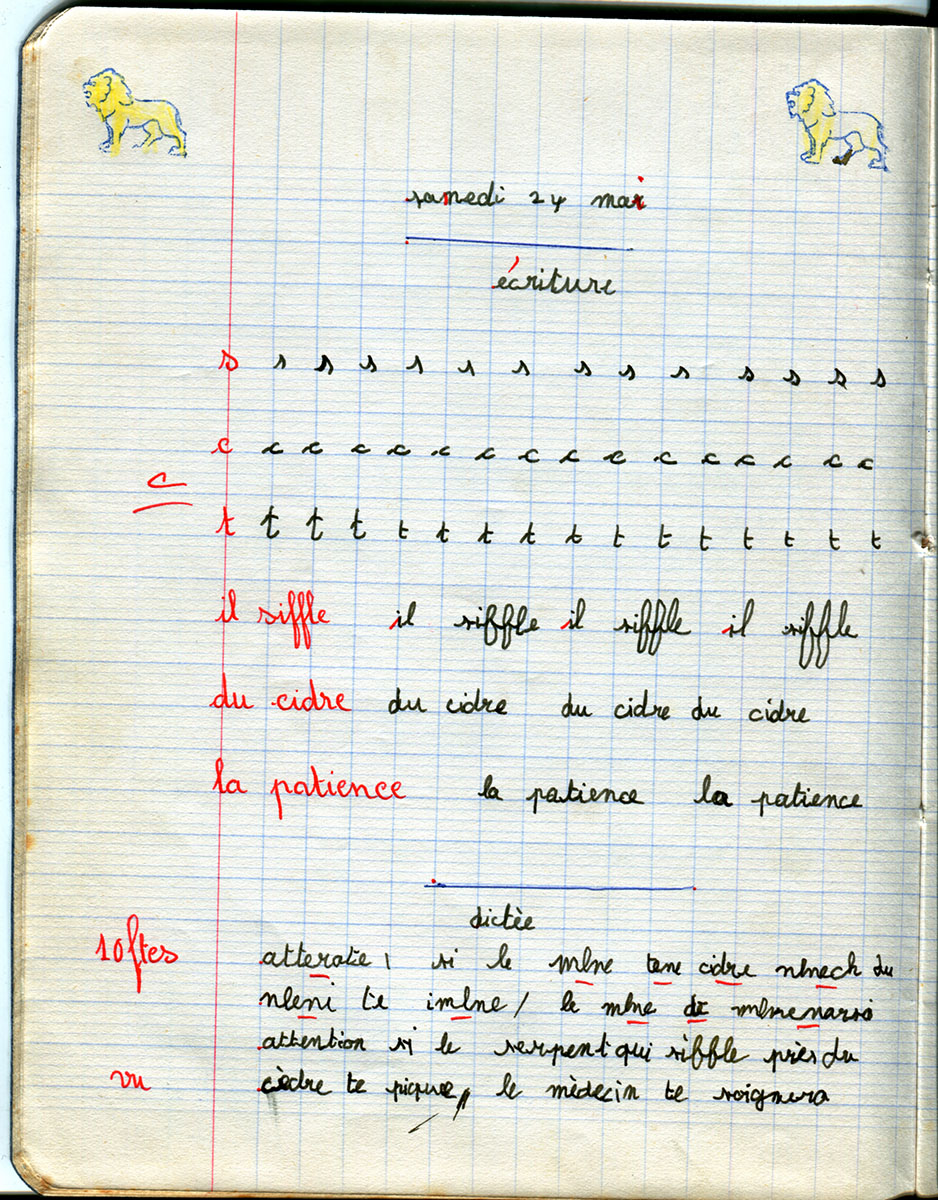 samedi 24 mai
écriture
s s s s s s s s s s s s s s
c c c c c c c c c c c c c c c
c
t t t t t t t t t t t t t t t t
il siffle il siffle il siffle il siffle
du cidre du cidre du cidre du cidre
la patience la patience la patience
dictèe
10 ftes atterate si le mlne tene cidre nlnech du
nleni te imlne / le mlne de mlmenarsi
attention si le serpent qui siffle près du
vu cèdre te piqure, le mèdecin te soignera